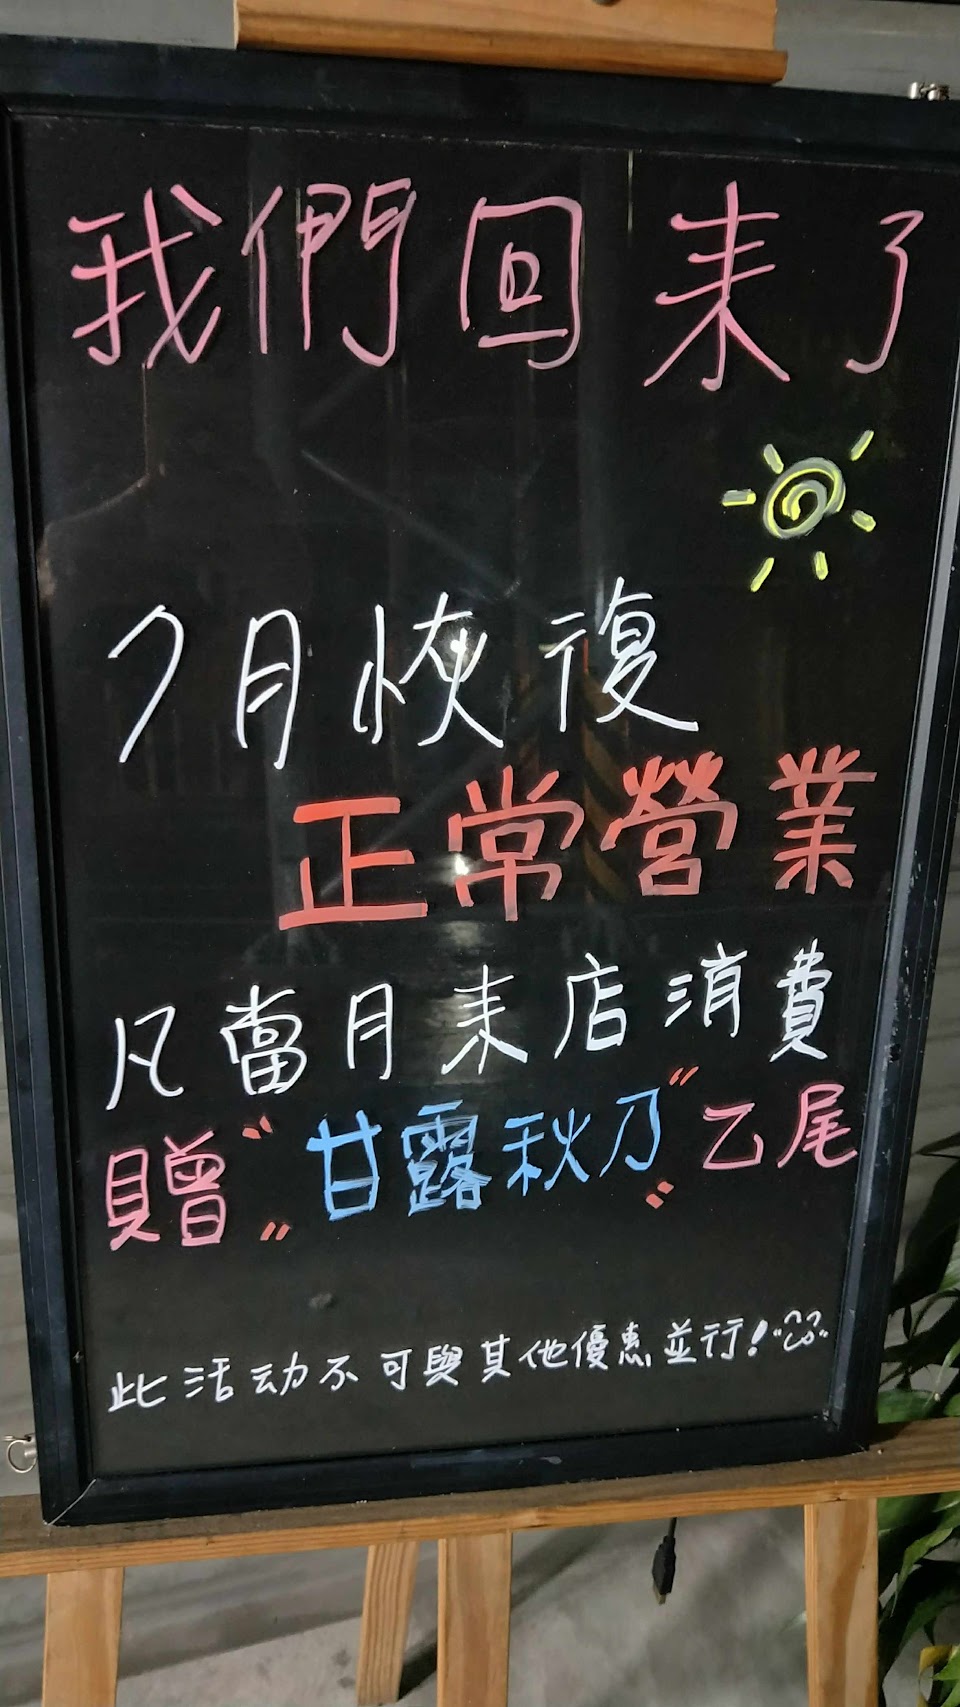 我們回来了
7月恢復
正常營業
凡當月来店消費
贈"甘露秋刀"乙尾
此活动不可與其他優惠並行!